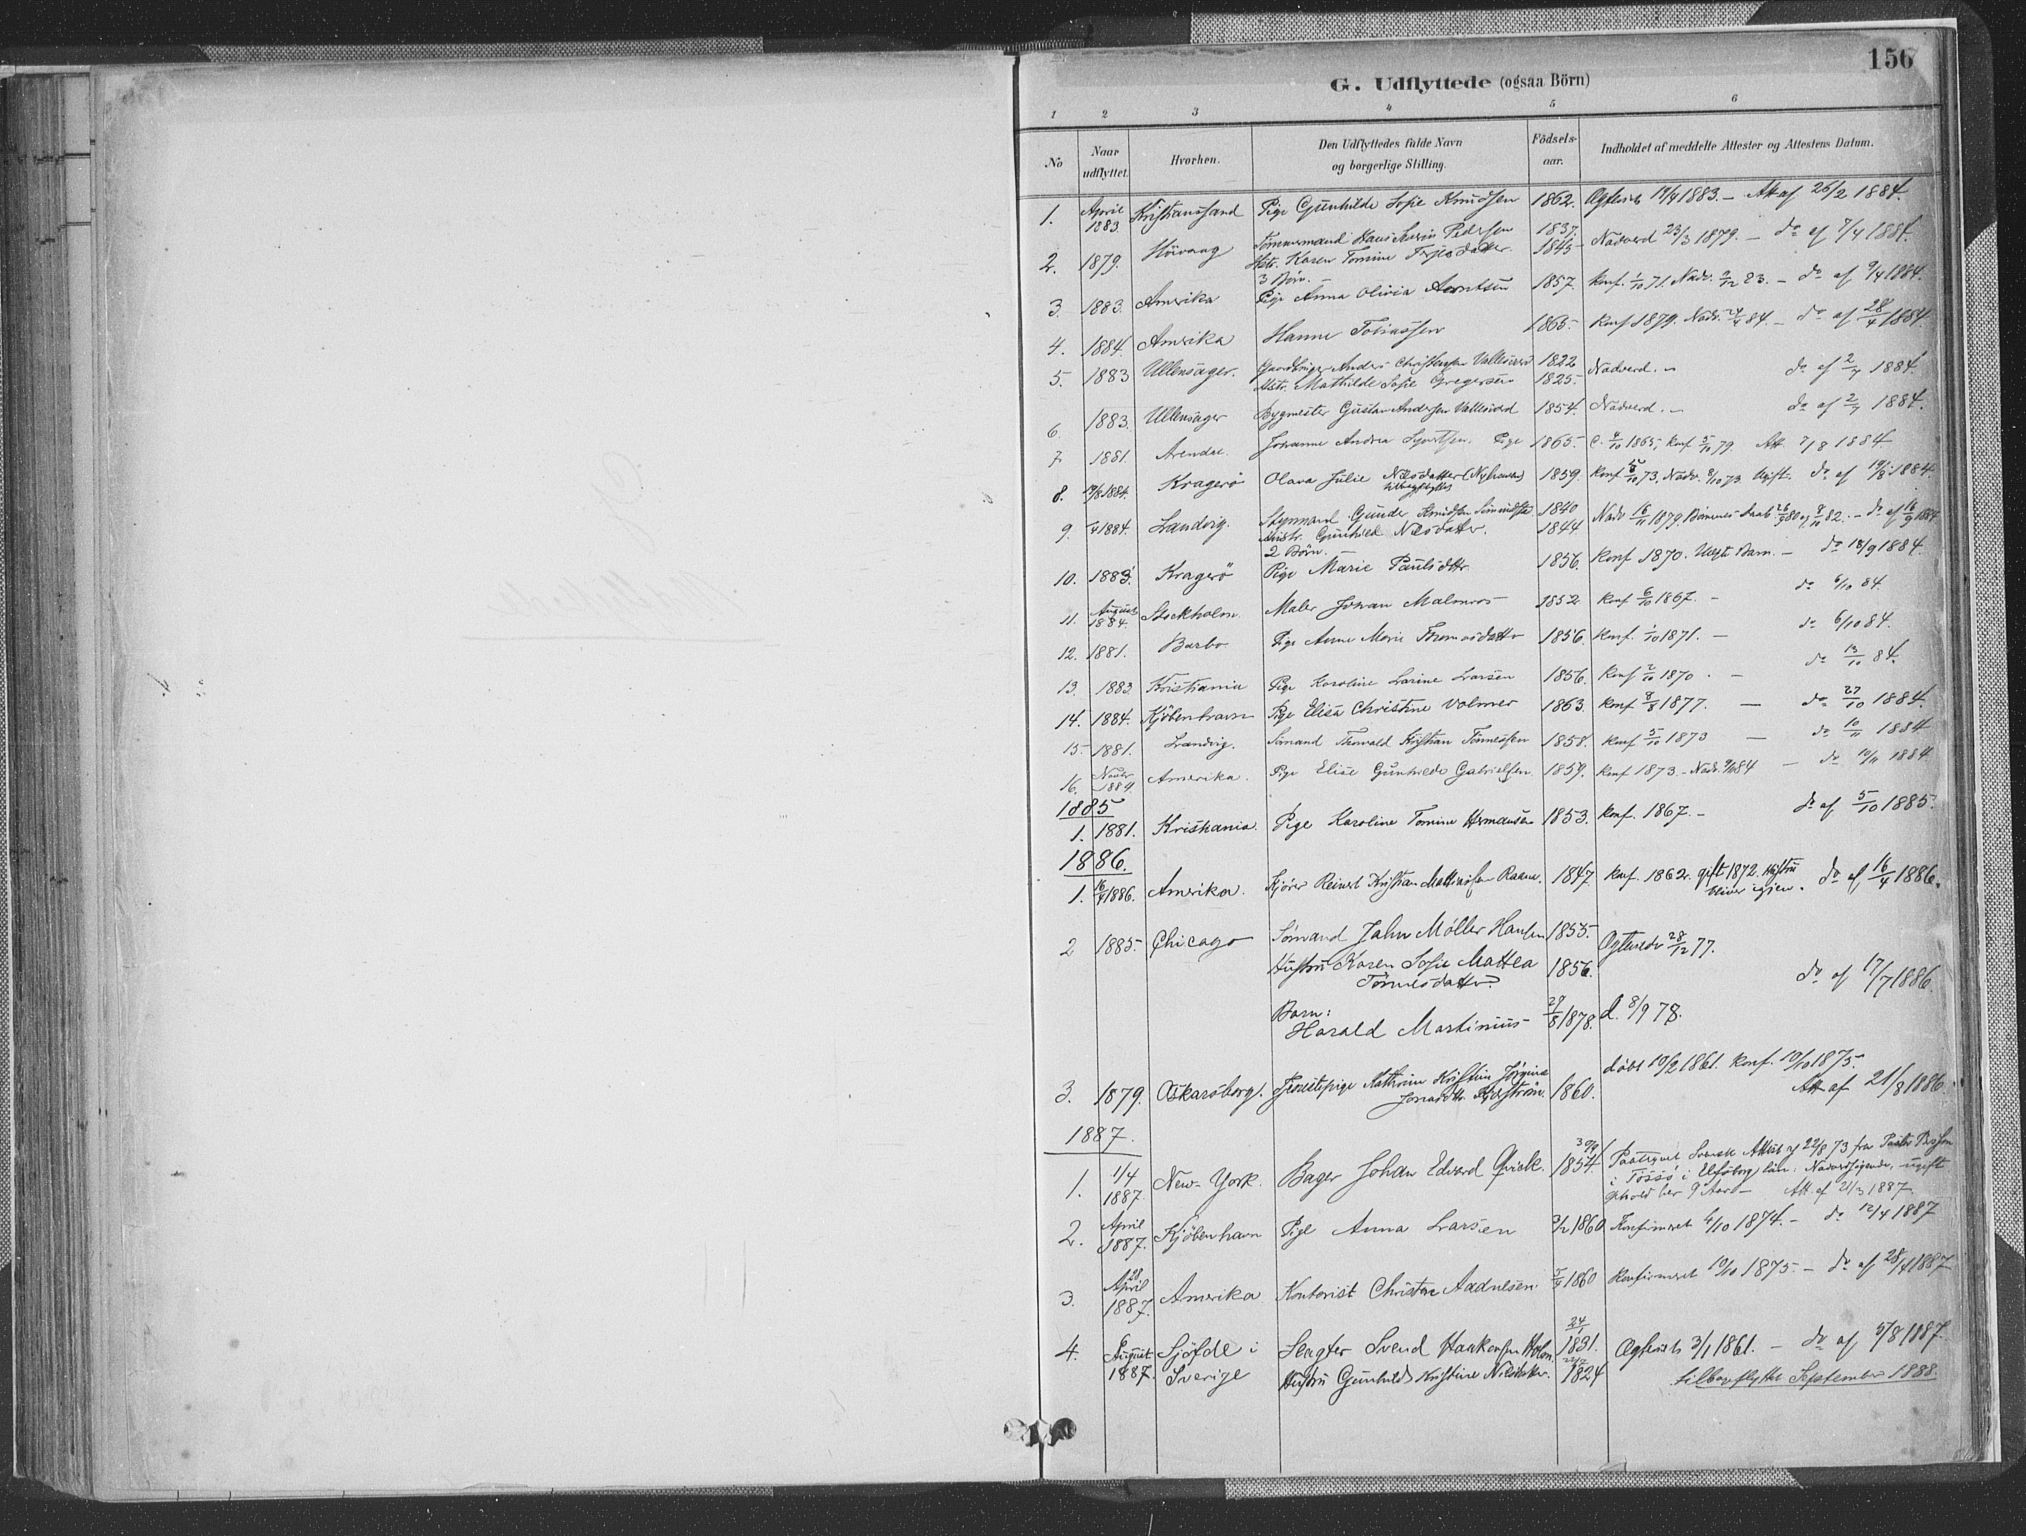 156
G. Udflyttede (ogsaa Börn)
1 2 3 4 5 6
No Naar udflyttet. Hvorhen. Den Udflyttedes fulde Navn og borgerlige Stilling. Födsels-aar. Indholdet af meddelte Attester og Attestens Datum.
1. April 1883 Kristianssand Pige Gunhilde Sofie Knudsen 1862. 1883. – Att af 26/2 1884.
2. 1879. Höivaag Tömmermand Hans Pedersen 1837. Nadverd 23/3 1879. – do af 7/4 1884.
Hstr. Karen Tomine 1845
3 Börn. –
3. 1883. Amerika Pige Anna Olivia Arntsen 1857. Konf. 1/10 71. Nadv. 2/12 83. – do af 9/4 1884.
4. 1884. Amerika Hanne Tobiassen 1865. Konf 1879. Nadv. 84. – do af 28/4 1884.
5. 1883 Ullensager. Anders Christensen Vallesværd 1822 Nadverd. – do af 2/7 1884.
Hstr. Mathilde Sofie Gregersen 1825.
6. 1883. Ullensager Bygmester Gustav Andersen Vallesværd 1854. Nadverd. – do af 2/7 1884.
7 1881. Arendal. Johanne Andrea Pige 1865. 1865, Konf 5/10 79 Att. 7/8 1884
8. 1884. Kragerö Olava Julie Nilsdatter 1859. Konf 73, Nadv. 73 Ugift. do af 19/8 1884.
tilbageflyttet
9. 1884. Landvig. Gunder Knudsen 1840 Nadv 16/11 1879. Börnenes Daab 80 og 82. – do af 16/9 1884
Hustr. Gunhild Nilsdatter. 1844
2 Börn.
10. 1883. Kragerö Pige Marie Paulsdttr 1856. Konf 1870. Uægte Barn. – do 18/9 1884.
11. August 1884. Stockholm. Maler Johan Malmros 1852. Konf 6/10 1867. – do 6/10 84.
12. 1881. Barbo Pige Anne Marie Thomasdatter 1856. Konf. 1/10 1871. – do 6/10 84.
13. 1883. Kristiania Pige Karoline Larine Larsen 1856. Konf 2/10 1870. – do 13/10 84.
14. 1884. Kjöbenhavn Pige Elisa Christine Volmer 1863. Konf 1877. – do 27/10 1884.
15. 1881. Landvig. Sömand Thorvald Kristian Tönnesen 1858. Konf 5/10 1873 – do 10/11 1884
16. Novbr 1884. Amerika. Pige Elise Gunhilde Gabrielsen 1859. Konf 1873. – Nadv. 84 – do 10/11 1884
1885
1. 1881. Kristiania. Pige Karoline Tomine Hermansen 1853. Konf. 1867. – do af 5/10 1885.
1886.
1. 16/4 1886. Amerika. Reinert Kristian Mathiassen 1847. Konf. 1862. gift 1872. Hustru bliver igjen. do af 16/4 1886.
2 1885. Chicago Sömand Jahn Möller Hansen 1855. Ægteviede 28/12 77.
Hustru Karen Sofie Mattea 1856.
Tönnesdatter. do af 17/7 1886.
Barn:
Harald Martinius 27/8 1878. d. 8/9 78.
3. 1879. Oskarsborg. Tjenestepige Kathrine Kristine Jörgine 1860. döbt 10/2 1861. Konf. 10/10 1875.
Att af 21/8 1886.
1887.
1. 1/4 1887. New-York. Bager Johan Edvard Qvick. 1854. svensk Attest af 22/8 73 fra Pastor
i Tössö i Elfsborg län. Nadverdsögende, ugift
ophold her 9 Aar – Att. af 21/3 1887.
2. April 1887. Kjöbenhavn Pige Anna Larsen 1860 Konfirmeret 4/10 1874. – do 12/4 1887
3. 28 April 1887. Amerika Kontorist Christen Aadnesen 1860 Konfirmeret 10/10 1875. – do af 28/4 1887
4. 6 August 1887. Sjöfde i Sverige Slagter Svend Haakensen Holm. 24/1 1831. Ægteviet 3/1 1861. – do af 5/8 1887.
Hustru Gunhild Kristine 1824 tilbageflyttet September 1888.